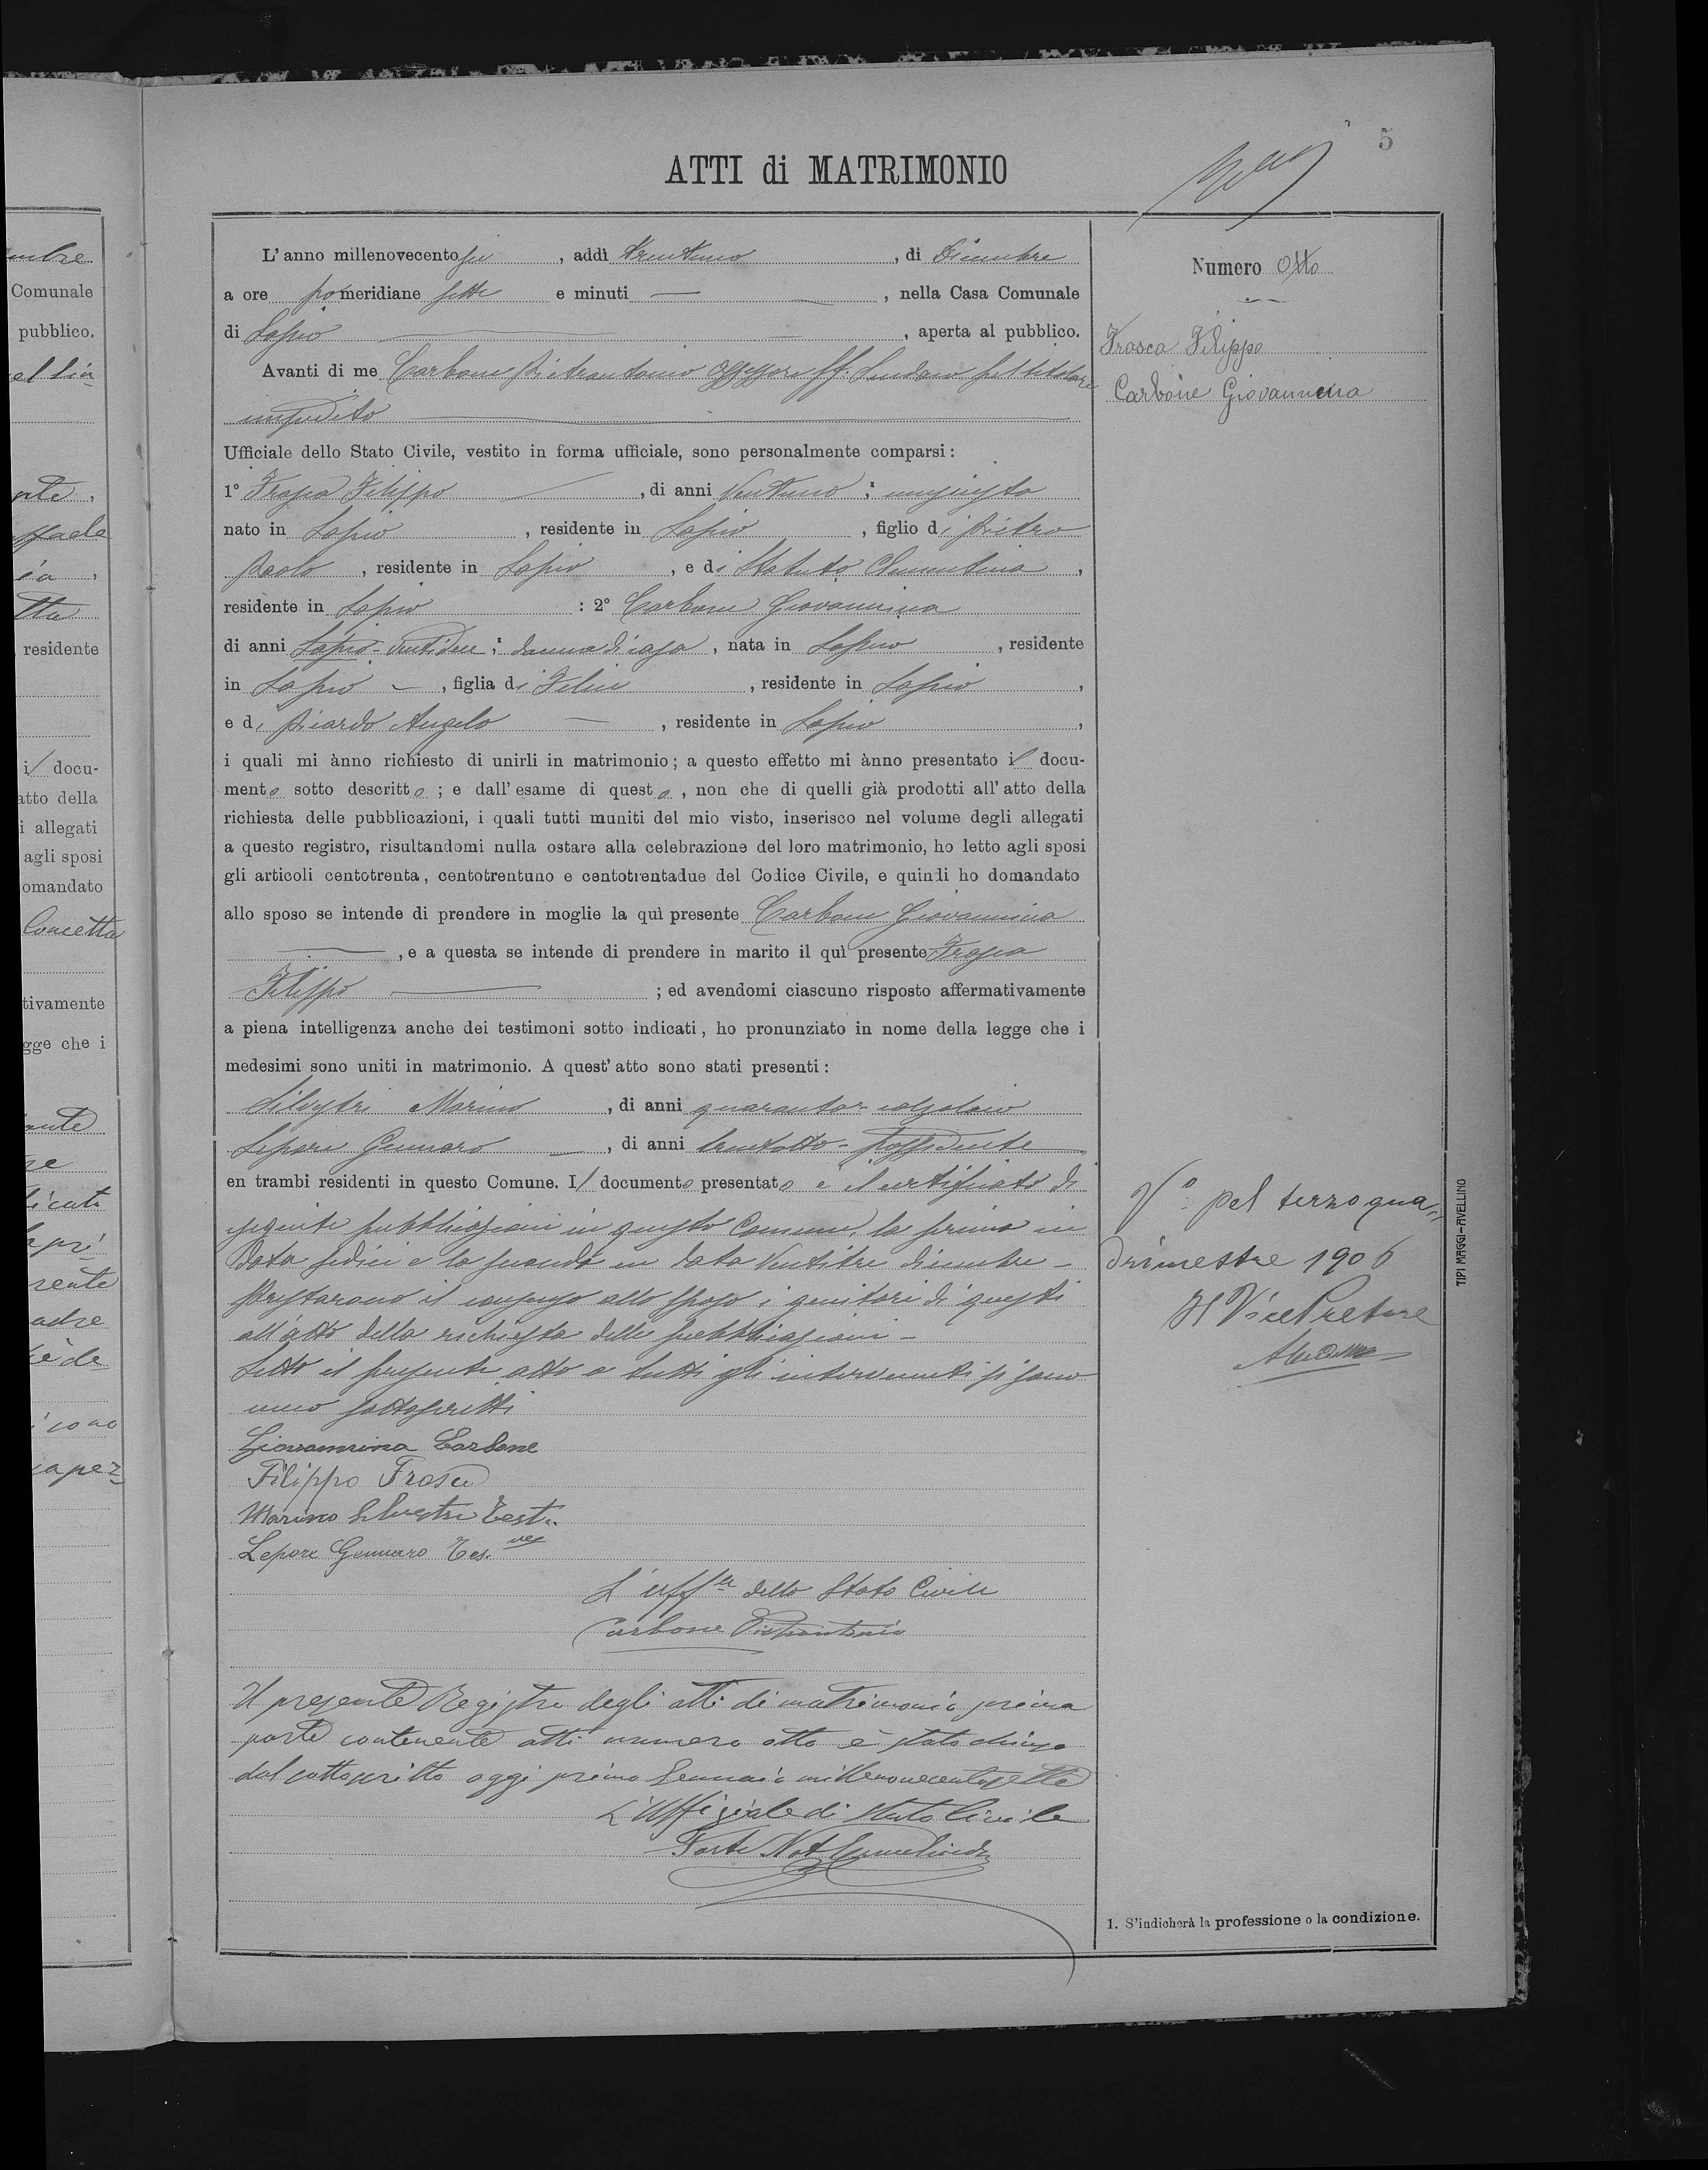 5
ATTI di MATRIMONIO
L'anno millenovecento sei, addì trentuno, di Dicembre
a ore pomeridiane sette e minuti —, nella Casa Comunale
di Lapio —, aperta al pubblico.
Avanti di me Carbone Pietrantonio Assessore ff. Sindaco pel titolare
impedito
Ufficiale dello Stato Civile, vestito in forma ufficiale, sono personalmente comparsi:
1° Frasca Filippo, di anni ventuno;
nato in Lapio, residente in Lapio, figlio di Pietro
Paolo, residente in Lapio, e di Statuto Clementina,
residente in Lapio : 2° Carbone Giovannina
di anni Lapio - ventidue; donna di casa, nata in Lapio, residente
in Lapio —, figlia di Felice, residente in Lapio,
e di Picardo Angela —, residente in Lapio,
i quali mi ànno richiesto di unirli in matrimonio; a questo effetto mi ànno presentato il docu-
mento sotto descritto; e dall'esame di questo, non che di quelli già prodotti all'atto della
richiesta delle pubblicazioni, i quali tutti muniti del mio visto, inserisco nel volume degli allegati
a questo registro, risultandomi nulla ostare alla celebrazione del loro matrimonio, ho letto agli sposi
gli articoli centotrenta, centotrentuno e centotrentadue del Codice Civile, e quindi ho domandato
allo sposo se intende di prendere in moglie la quì presente Carbone Giovannina
—, e a questa se intende di prendere in marito il quì presente Frasca
Filippo — ; ed avendomi ciascuno risposto affermativamente
a piena intelligenza anche dei testimoni sotto indicati, ho pronunziato in nome della legge che i
medesimi sono uniti in matrimonio. A quest'atto sono stati presenti:
Silvestri Marino, di anni quaranta - calzolaio
Lepore Gennaro —, di anni trentotto - possidente
en trambi residenti in questo Comune. Il documento presentato è il certificato di
eseguite pubblicazioni in questo Comune, la prima in
data sedici e la seconda in data ventitre dicembre -
Prestarono il consenso allo sposo i genitori di questi
all'atto della richiesta delle pubblicazioni -
Letto il presente atto a tutti gli intervenuti si sono
meco sottoscritti
Giovannina Carbone
Filippo Frasca
Marino Silvestri Test.
Lepore Gennaro Tes.
L'uff.le dello Stato Civile
Carbone Pietrantonio
Il presente Registro degli atti di matrimonio prima
parte contenente atti numero otto è stato chiuso
dal sottoscritto oggi primo Gennaio millenovecentosette
L'Uffiziale di Stato Civile
Forte Not
Numero Otto
Frasca Filippo
Carbone Giovannina
V° pel terzo qua-
drimestre 1906
Il Vice Pretore
1. S'indicherà la professione o la condizione.
TIPI MAGGI-AVELLINO
Comunale
pubblico.
residente
il docu-
atto della
i allegati
agli sposi
omandato
Concetta
tivamente
gge che i